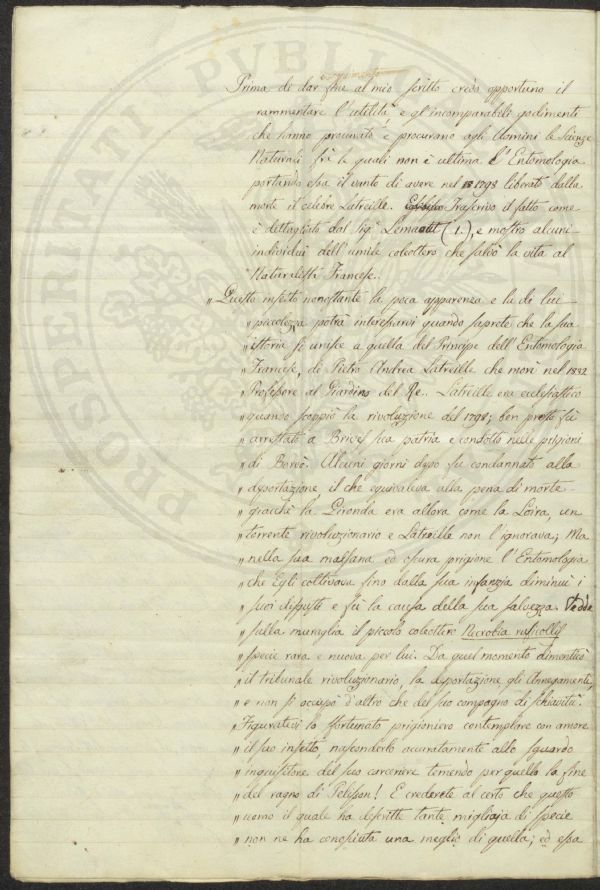 compimento
Prima di dar fine al mio scritto credo opportuno il
rammentare l'utilità e gl'incomparabili godimenti
che hanno procurato e procurano agli Uomini le Scienze
Naturali frà le quali non è ultima l'Entomologia
portando essa il vanto di avere nel 1798 liberato dalla
morte il celebre Latreille. Trascrivo il fatto come
è dettagliato dal Sig.r (1.), e mostro alcuni
individui dell'umile coleottero che salvò la vita al
Naturalista Francese.
„ Questo insetto nonostante la poca apparenza e la di lui
„ piccolezza potrà interessarvi quando saprete che la sua
„ istoria si unisce a quella del Principe dell'Entomologia
„ Francese, di Pietro Andrea Latreille che morì nel 1832
„ Professore al Giardino del Re. Latreille era ecclesiastico
„ quando scoppiò la rivoluzione del 1798; ben presto fù
„ arrestato a Brive sua patria e condotto nelle prigioni
„ di Bordò. Alcuni giorni dopo fu condannato alla
„ deportazione, il che equivaleva alla pena di morte
„ giacchè la Gironda era allora come la Loira, un
„ torrente rivoluzionario e Latreille non l'ignorava; Ma
„ nella sua malsana ed oscura prigione l'Entomologia
„ che Egli coltivava fino dalla sua infanzia diminuì i
„ suoi disgusti e fù la causa della sua salvezza. Vedde
„ sulla muraglia il piccolo coleottero Necrobia ruficollis
„ specie rara e nuova per lui. Da quel momento dimenticò
„ il tribunale rivoluzionario, la deportazione gli Annegamenti,
„ e non si occupò d'altro che del suo compagno di schiavitù.
„ Figuratevi lo sfortunato prigioniero contemplare con amore
„ il suo insetto, nasconderlo accuratamente allo sguardo
„ inquisitore del suo carceriere temendo per quello la fine
„ del ragno di Pelisson! E crederete al certo che questo
„ uomo il quale ha descritte tante migliaja di specie
„ non ne ha conosciuta una meglio di quella; ed essa
PROSPERITATI PVBLICAE